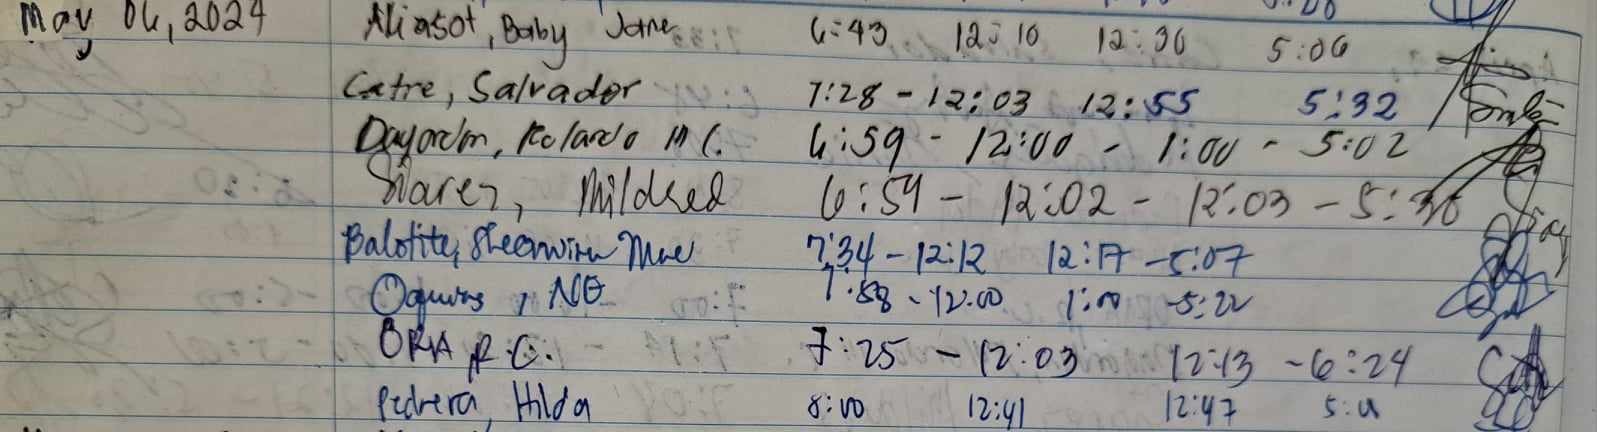 May 06, 2024 Aliasot, Baby Jane 6:43 12:10 12:36 5:06
Catre, Salvador 7:28 - 12:03 12:55 5:32
Dayordm, Rolando M C. 6:59 - 12:00 - 1:00 - 5:02
Siarez, Mildred 6:54 - 12:02 - 12:03 - 5:36
Balotite, Sheenwina Mae 7:34 - 12:12 12:17 - 5:07
Oquias, NE 7:58 - 12:00 1:00 - 5:22
ORA R.C. 7:25 - 12:03 12:13 - 6:24
Pedrera, Hilda 8:00 12:41 12:47